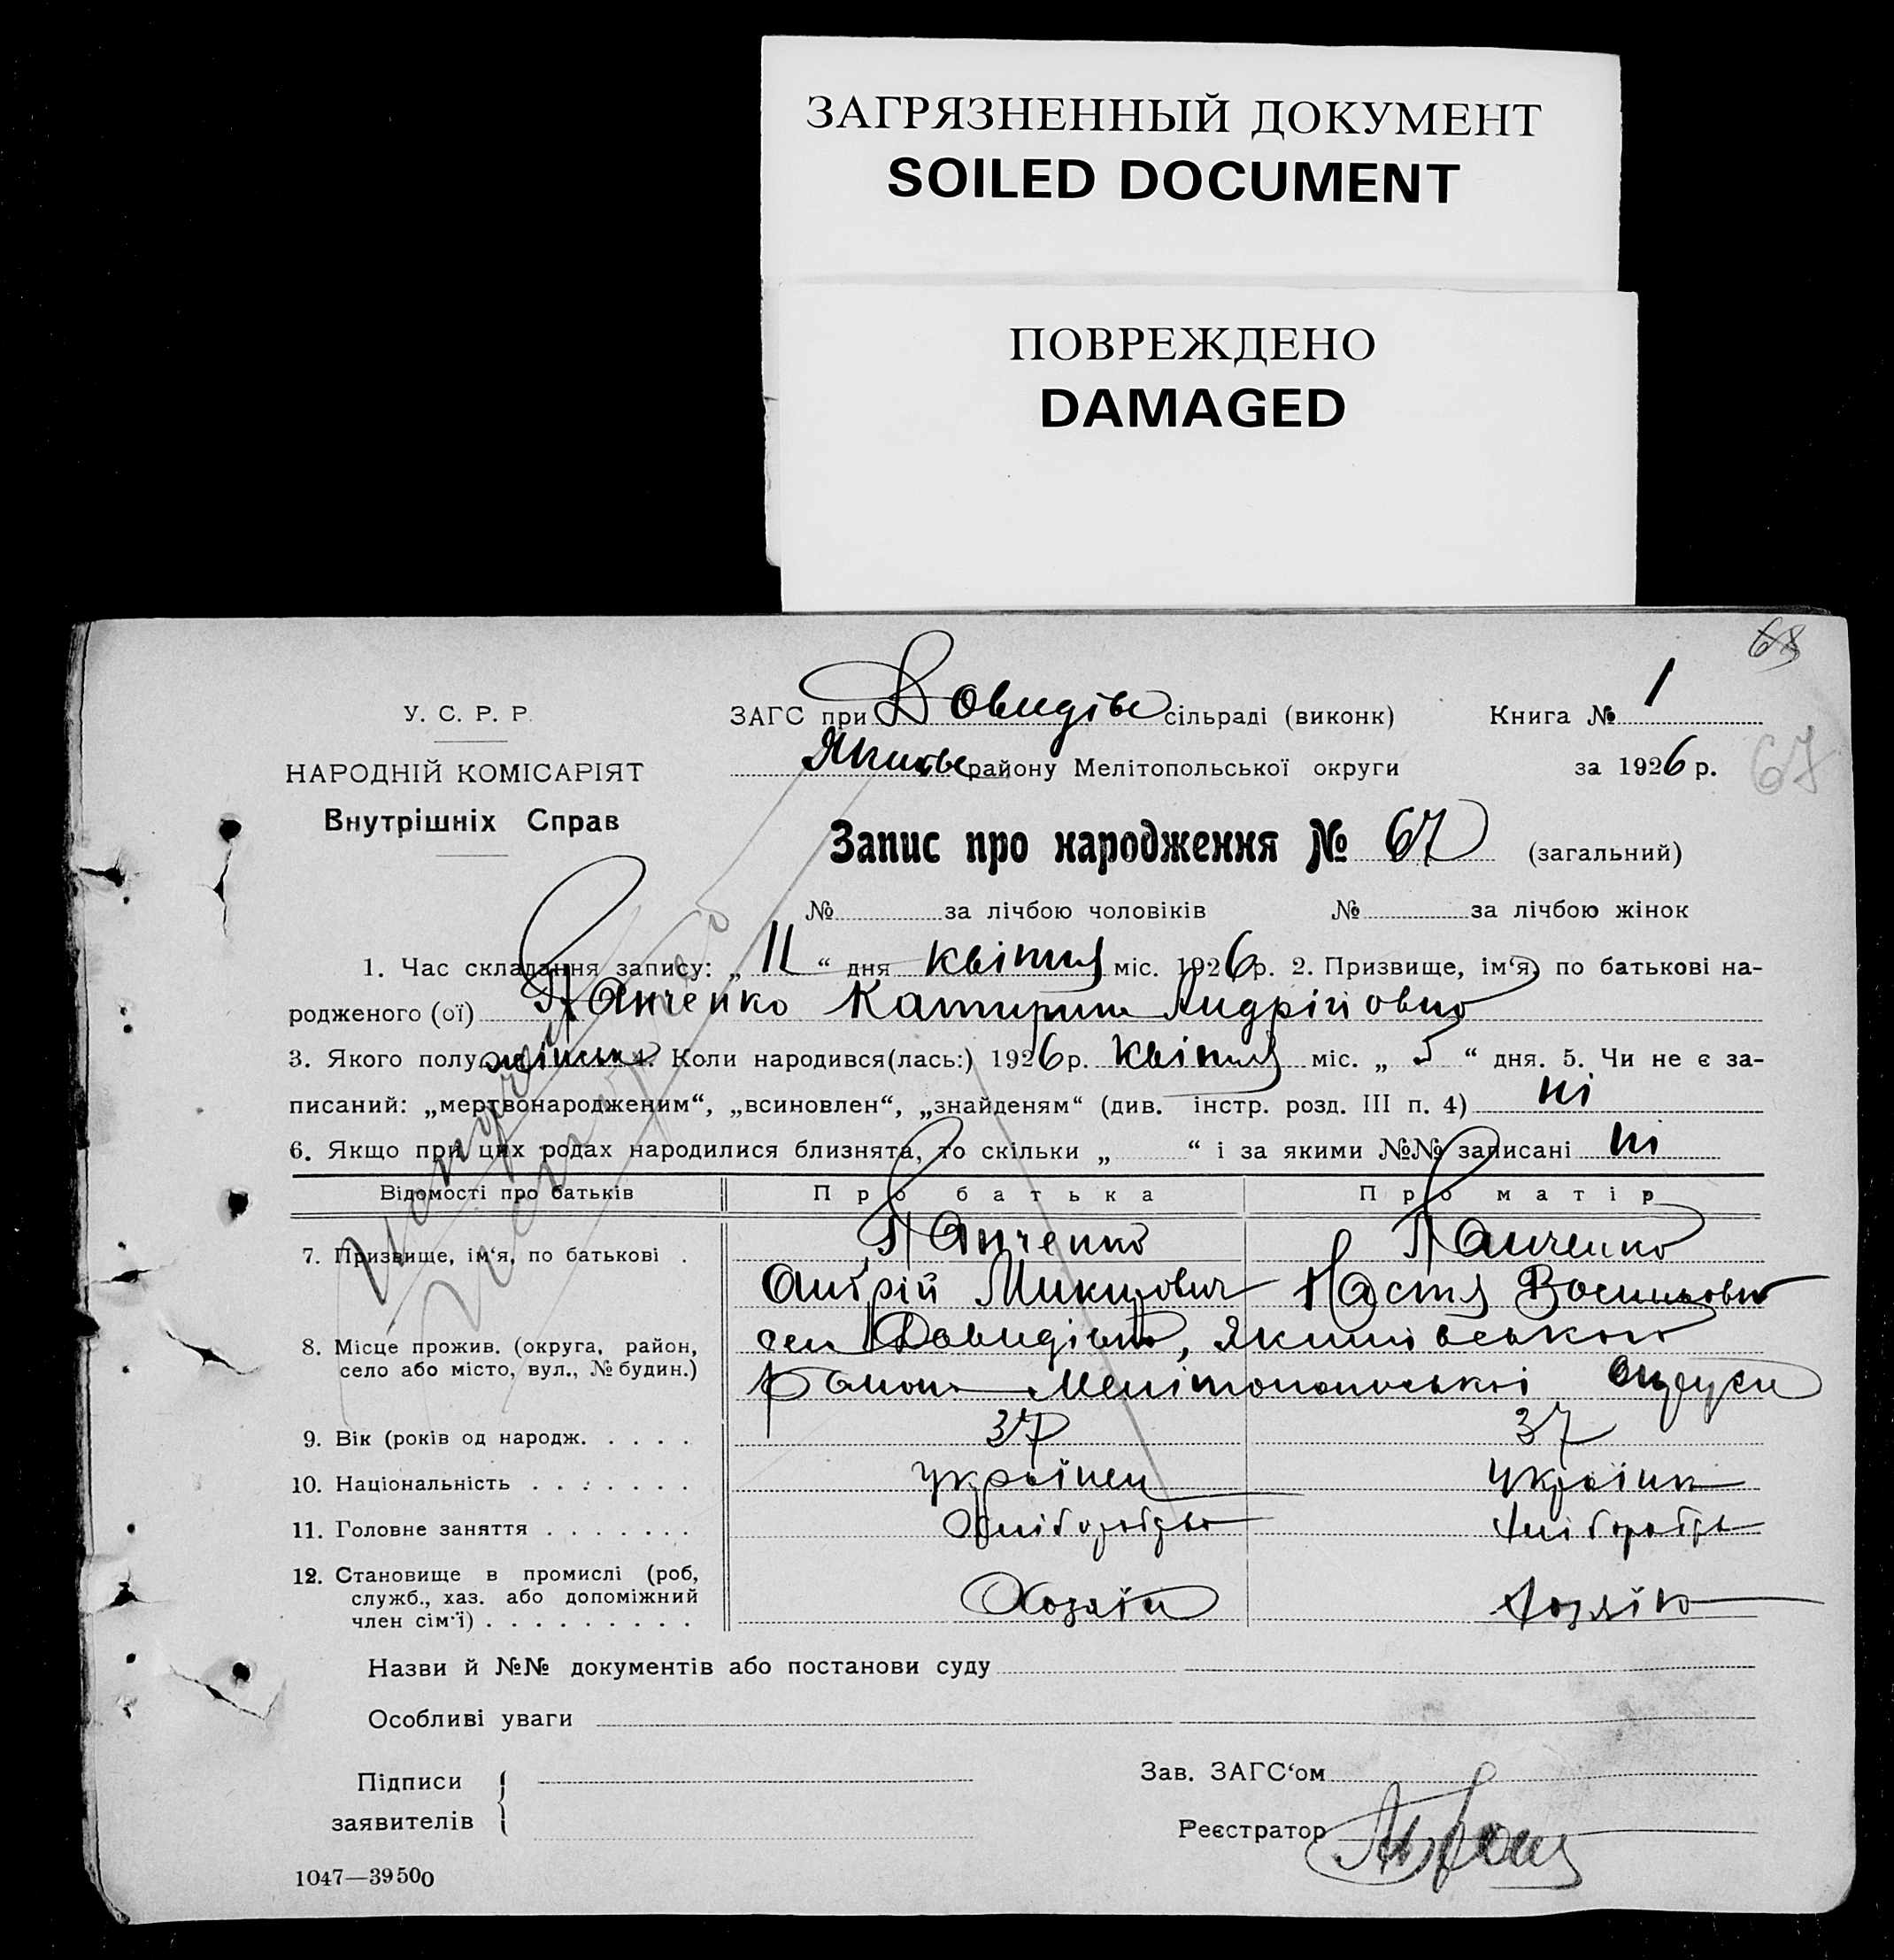 ЗАГРЯЗНЕННЫЙ ДОКУМЕНТ
SOILED DOCUMENT
ПОВРЕЖДЕНО
DAMAGED
68
У. С. Р. Р.
НАРОДНІЙ КОМІСАРІЯТ
Внутрішніх Справ
ЗАГС при Довидівс сільраді (виконк) Книга № 1
району Мелітопольської округи за 1926 р. 67
Запис про народження № 67 (загальний)
№ за лічбою чоловіків № за лічбою жінок
1. Час складання запису: „ 11 “ дня квітня міс. 1926 р. 2. Призвище, ім‘я, по батькові на-
родженого (ої) Панченко Катирина Андрійовна
3. Якого полу жіньск 4. Коли народився(лась:) 1926 р. квітня міс. „ 5 “ дня. 5. Чи не є за-
писаний: „мертвонародженим“, „всиновлен“, „знайденям“ (див. інстр. розд. III п. 4) ні
6. Якщо при цих родах народилися близнята, то скільки „ “ і за якими №№ записані ні
Відомості про батьків Про батька Про матір
7. Призвище, ім‘я, по батькові . Панченко Панченко
Андрій Настя
8. Місце прожив. (округа, район, село або місто, вул., № будин.) сел Давидівка, Якимівського
района Мелітопольськоі округи
9. Вік (років од народж. . . . . 37 37
10. Національність . . . . . . . українец українка
11. Головне заняття . . . . . . . Хліборобство
12. Становище в промислі (роб,
служб., хаз. або допоміжний
член сім‘ї) . . . . . . . . . Хозяїн хозяїка
Назви й №№ документів або постанови суду
Особливі уваги
Підписи
заявителів
Зав. ЗАГС‘ом
Реєстратор
1047—39500